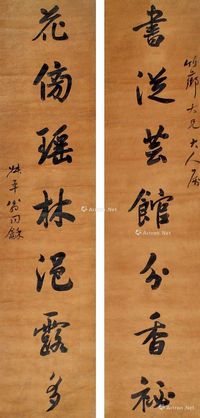 竹鄉大兄大人屬
書從芸館分香祕
花傍瑤林浥露多
叔平翁同龢